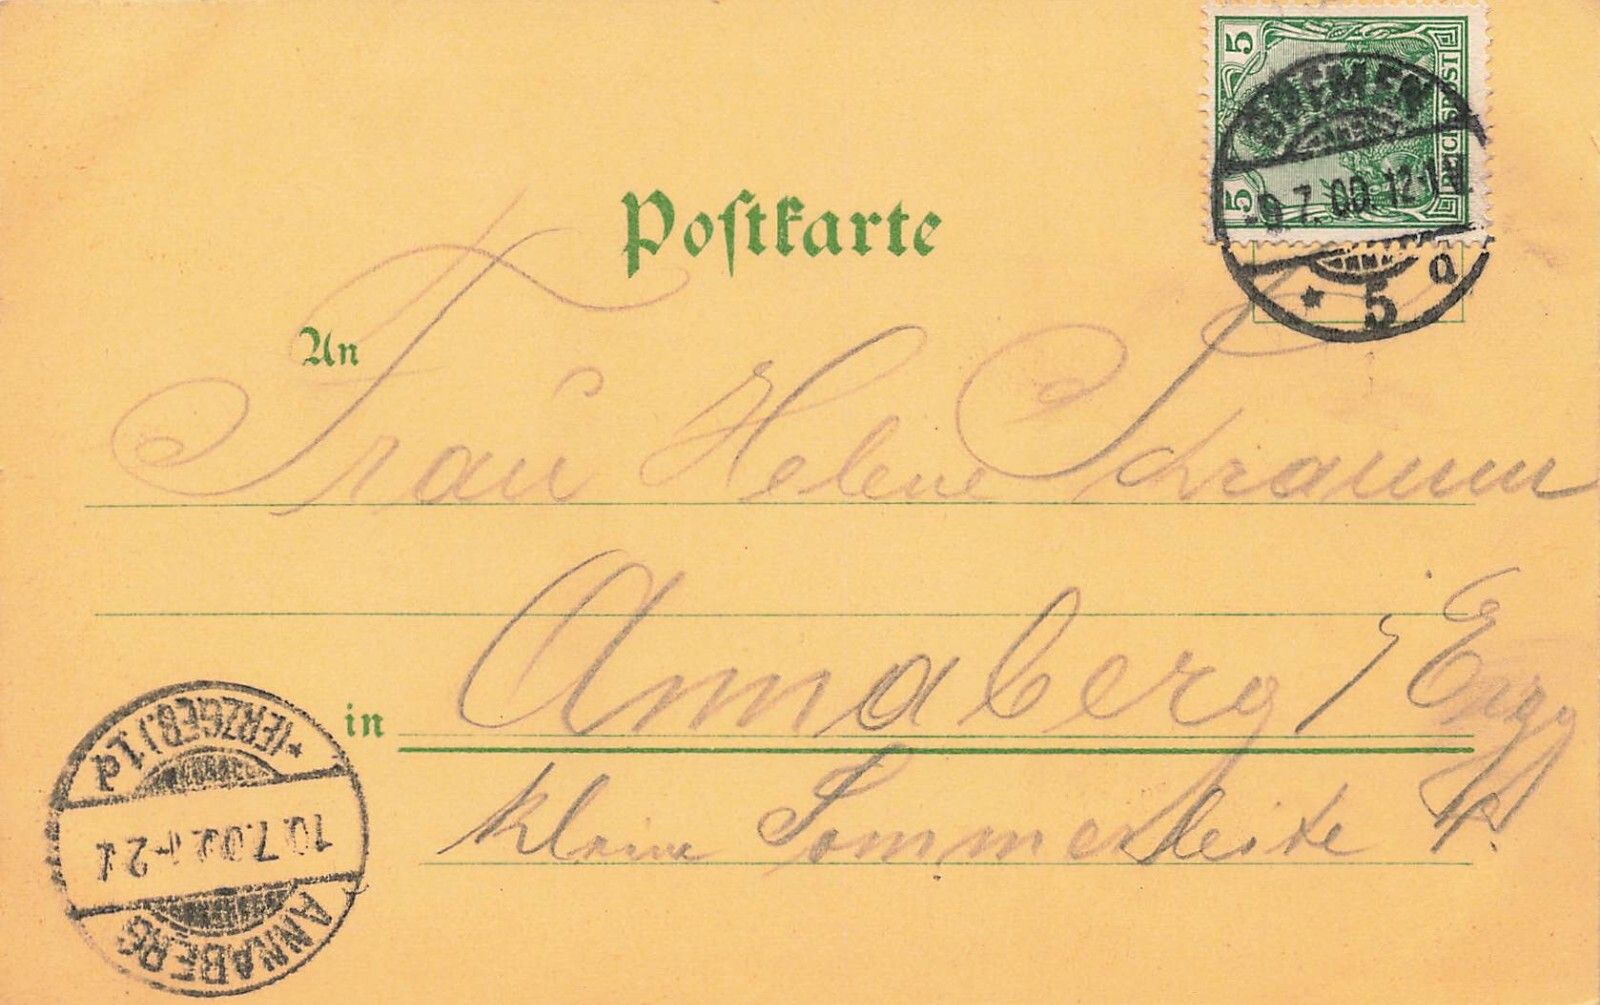 5 5
REICHSPOST
BREMEN
-9.7.00.12-1N.
* 5 a
Postkarte
An
Frau Helene Schramm
in
Annaberg / Erzg
kleine Sommerleite
ANNABERG
10.7.00.
*(ERZGEB.) 1d